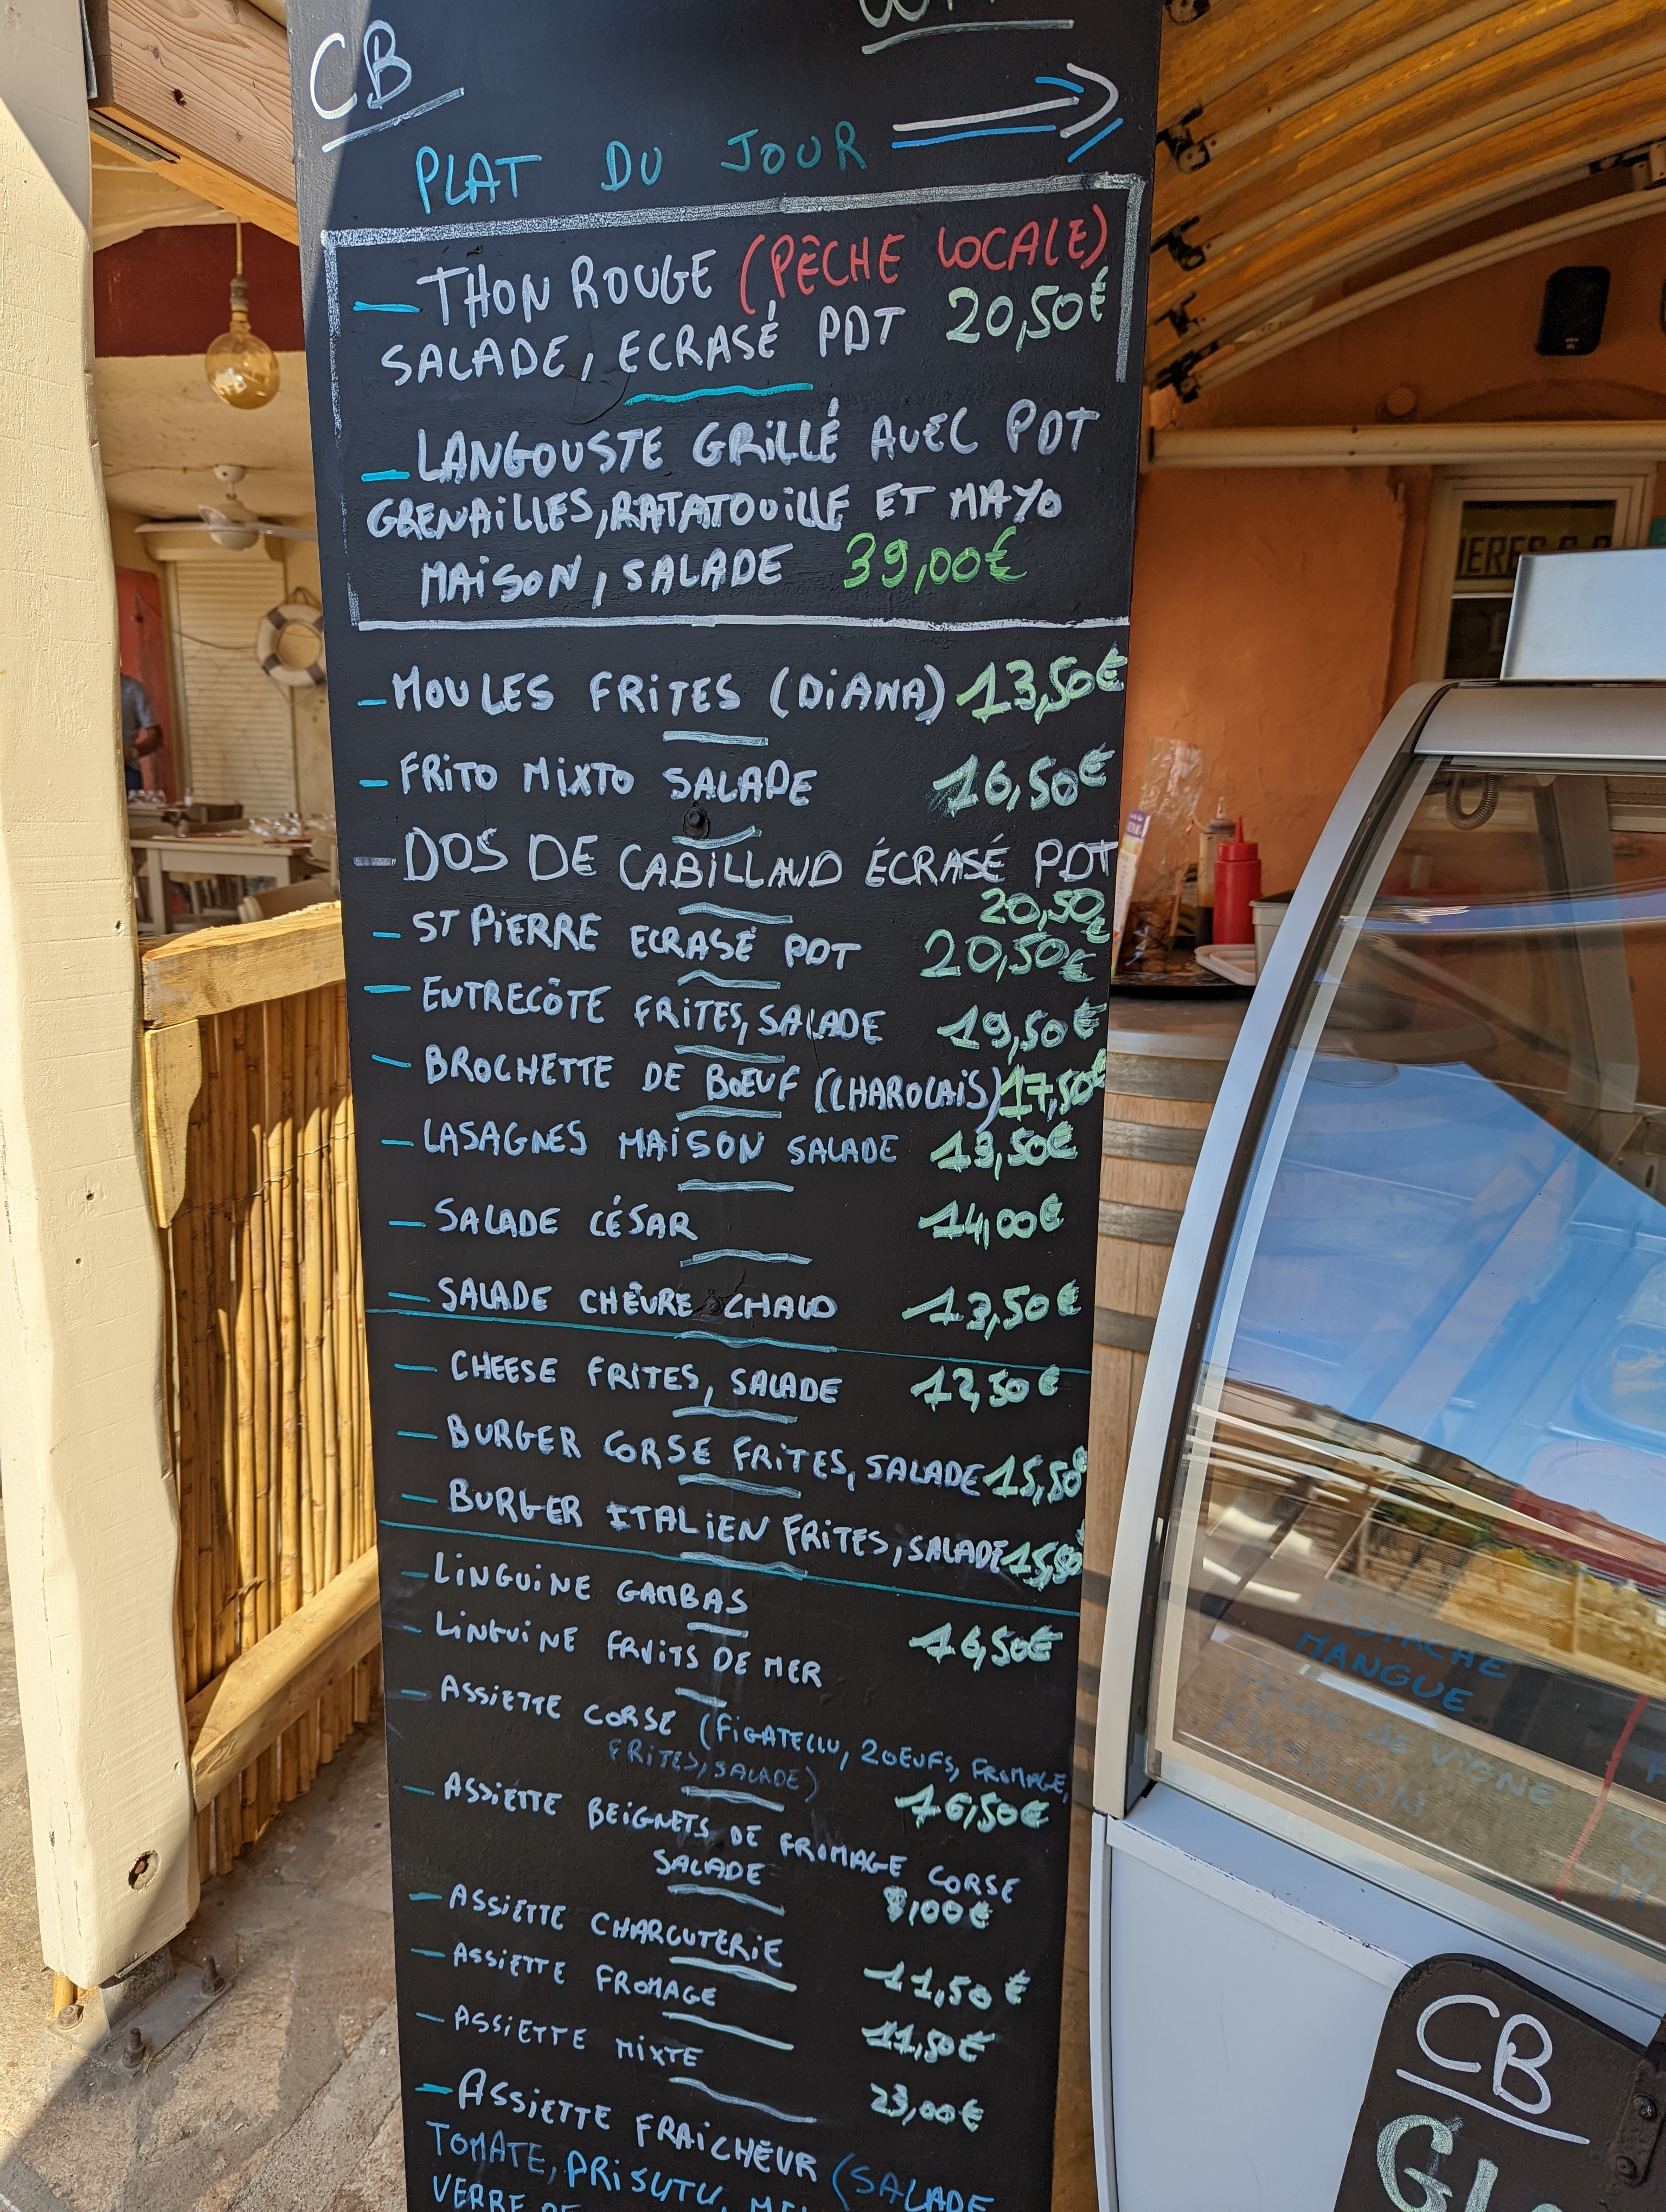 CB
PLAT DU JOUR
— THON ROUGE (PÊCHE LOCALE)
SALADE, ECRASÉ PDT 20,50€
— LANGOUSTE GRILLÉ AVEC PDT
GRENAILLES, RATATOUILLE ET MAYO
MAISON, SALADE 39,00€
— MOULES FRITES (DIANA) 13,50€
— FRITO MIXTO SALADE 16,50€
— DOS DE CABILLAUD ÉCRASÉ PDT
20,50€
— ST PIERRE ECRASÉ PDT 20,50€
— ENTRECÔTE FRITES, SALADE 19,50€
— BROCHETTE DE BŒUF (CHAROLAIS) 17,50€
— LASAGNES MAISON SALADE 13,50€
— SALADE CÉSAR 14,00€
— SALADE CHÈVRE CHAUD 13,50€
— CHEESE FRITES, SALADE 12,50€
— BURGER CORSE FRITES, SALADE 15,50€
— BURGER ITALIEN FRITES, SALADE 15,50
— LINGUINE GAMBAS
— LINGUINE FRUITS DE MER 16,50€
— ASSIETTE CORSE (FIGATELLU, 2 OEUFS, FROMAGE,
FRITES, SALADE)
16,50€
— ASSIETTE BEIGNETS DE FROMAGE CORSE
SALADE
,00€
— ASSIETTE CHARCUTERIE 11,50€
— ASSIETTE FROMAGE 11,50€
— ASSIETTE MIXTE 23,00€
— ASSIETTE FRAICHEUR (SALADE
TOMATE, PRISUTU,
VERRE DE
PISTACHE
MANGUE
PÊCHE DE VIGNE
PASSION
CB